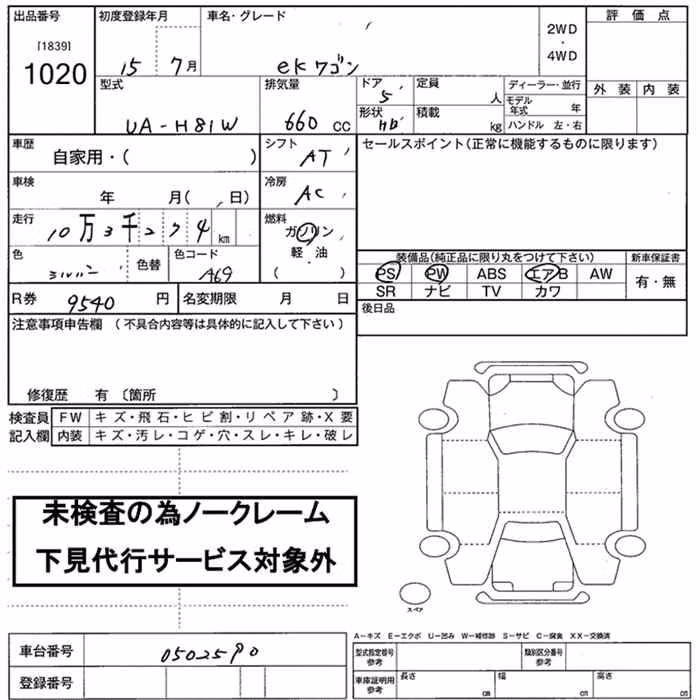 出品番号 初度登録年月 車名・グレード 2WD・4WD 評価点
[1839]
1020 15 7月 eKワゴン
型式 排気量 ドア 定員 ディーラー・並行 外装 内装
UA-H81W 660 CC 5 人 モデル年式 年
形状 積載 kg ハンドル 左・右
車歴 シフト セールスポイント(正常に機能するものに限ります)
自家用・( ) AT
車検 年 月( 日) 冷房 AC
走行 10万3千274km 燃料 ガソリン
軽・油
( )
色 シルバー 色替 色コード A69
装備品(純正品に限り丸をつけて下さい) 新車保証書
PS PW ABS エアB AW 有・無
SR ナビ TV カワ
R券 9540円 名変期限 月 日 後日品
注意事項申告欄 (不具合内容等は具体的に記入して下さい)
修復歴 有 〔箇所 〕
検査員 FW キズ・飛石・ヒビ割・リペア跡・X要
記入欄 内装 キズ・汚レ・コゲ・穴・スレ・キレ・破レ
未検査の為ノークレーム
下見代行サービス対象外
スペア
A-キズ E-エクボ U-凹み W-補修跡 S-サビ C-腐食 XX-交換済
車台番号 0502590 型式指定番号 参考 類別区分番号 参考
登録番号 車庫証明用 参考 長さ cm 幅 cm 高さ cm